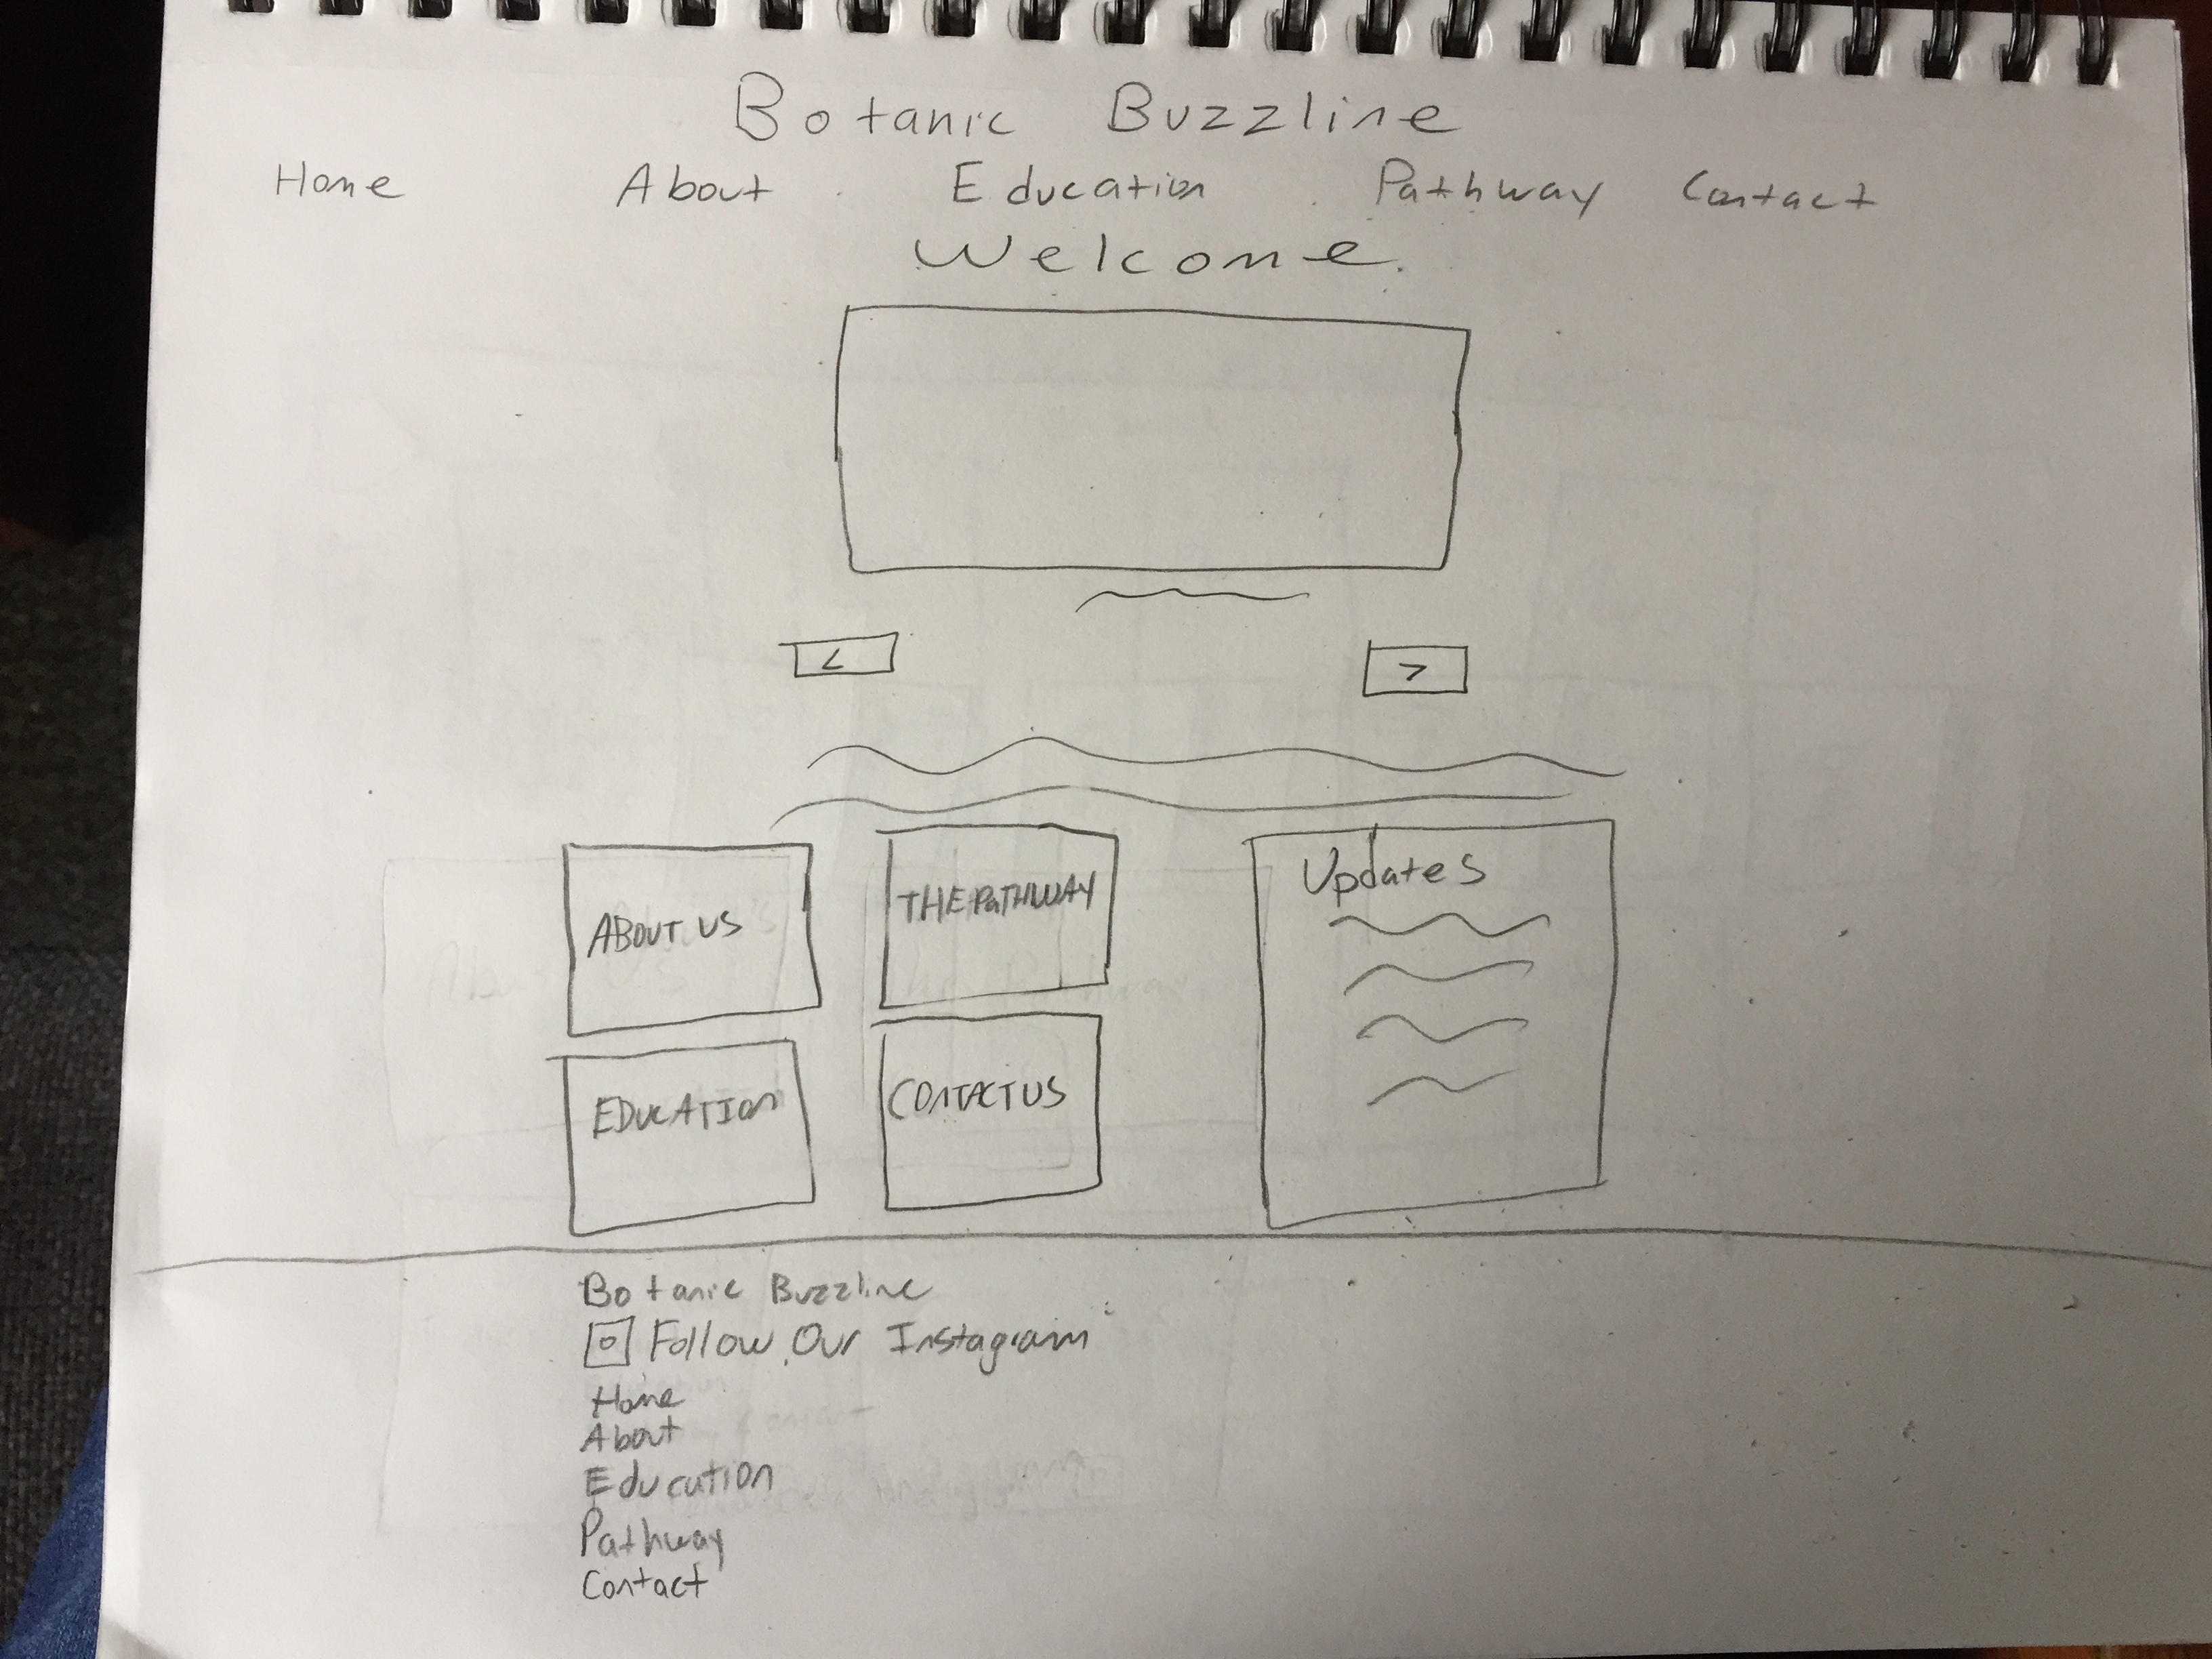 Botanic Buzzline
Home About Education Pathway Contact
Welcome
<
>
ABOUT US
THE PATHWAY
Updates
EDUCATION
CONTACT US
Botanic Buzzline
Follow Our Instagram
Home
About
Education
Pathway
Contact